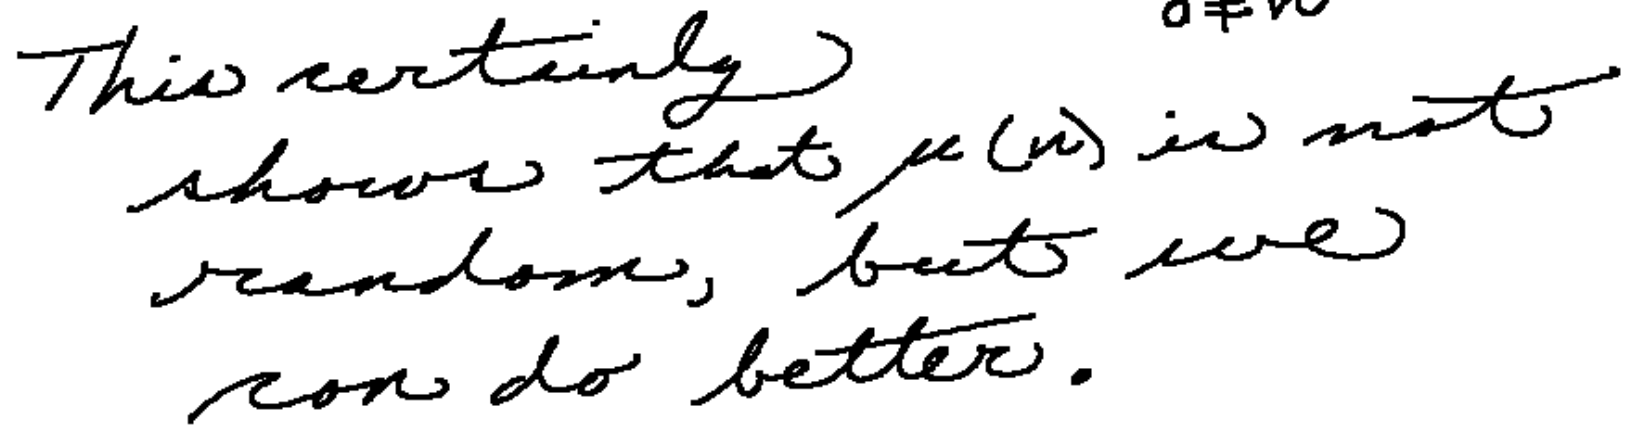 This certainly
shows that μ(n) is not
random, but we
can do better.